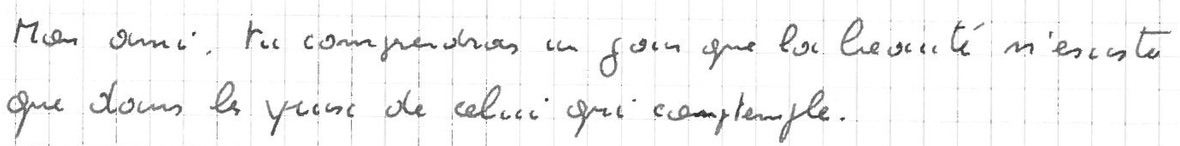 Mon ami, tu comprendras un jour que la beauté n'existe
que dans les yeux de celui qui comptemple.